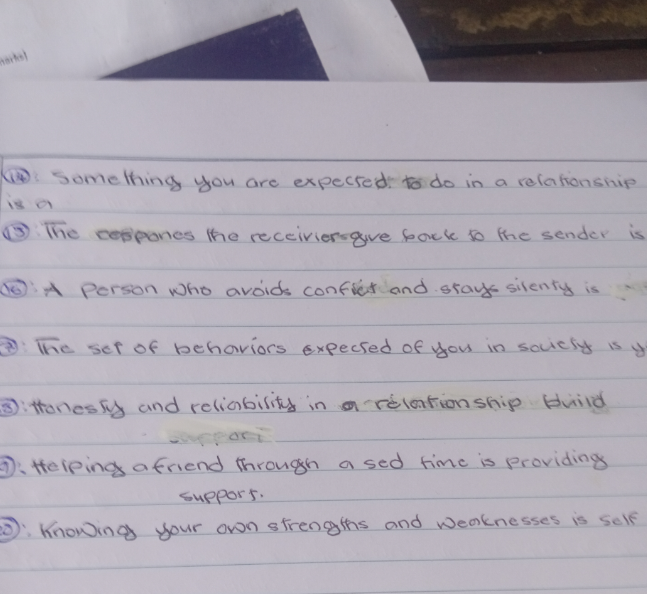 (14): Something you are expected to do in a relationship
is a
(15): The respones the receivier give back to the sender is
(16): A person who avoids conflict and stays silenty is
: The set of behaviors expected of you in society is y
: Honesty and reliability in a relationship build
: Helping a friend through a sed time is providing
support.
: Knowing your own strengths and weaknesses is self